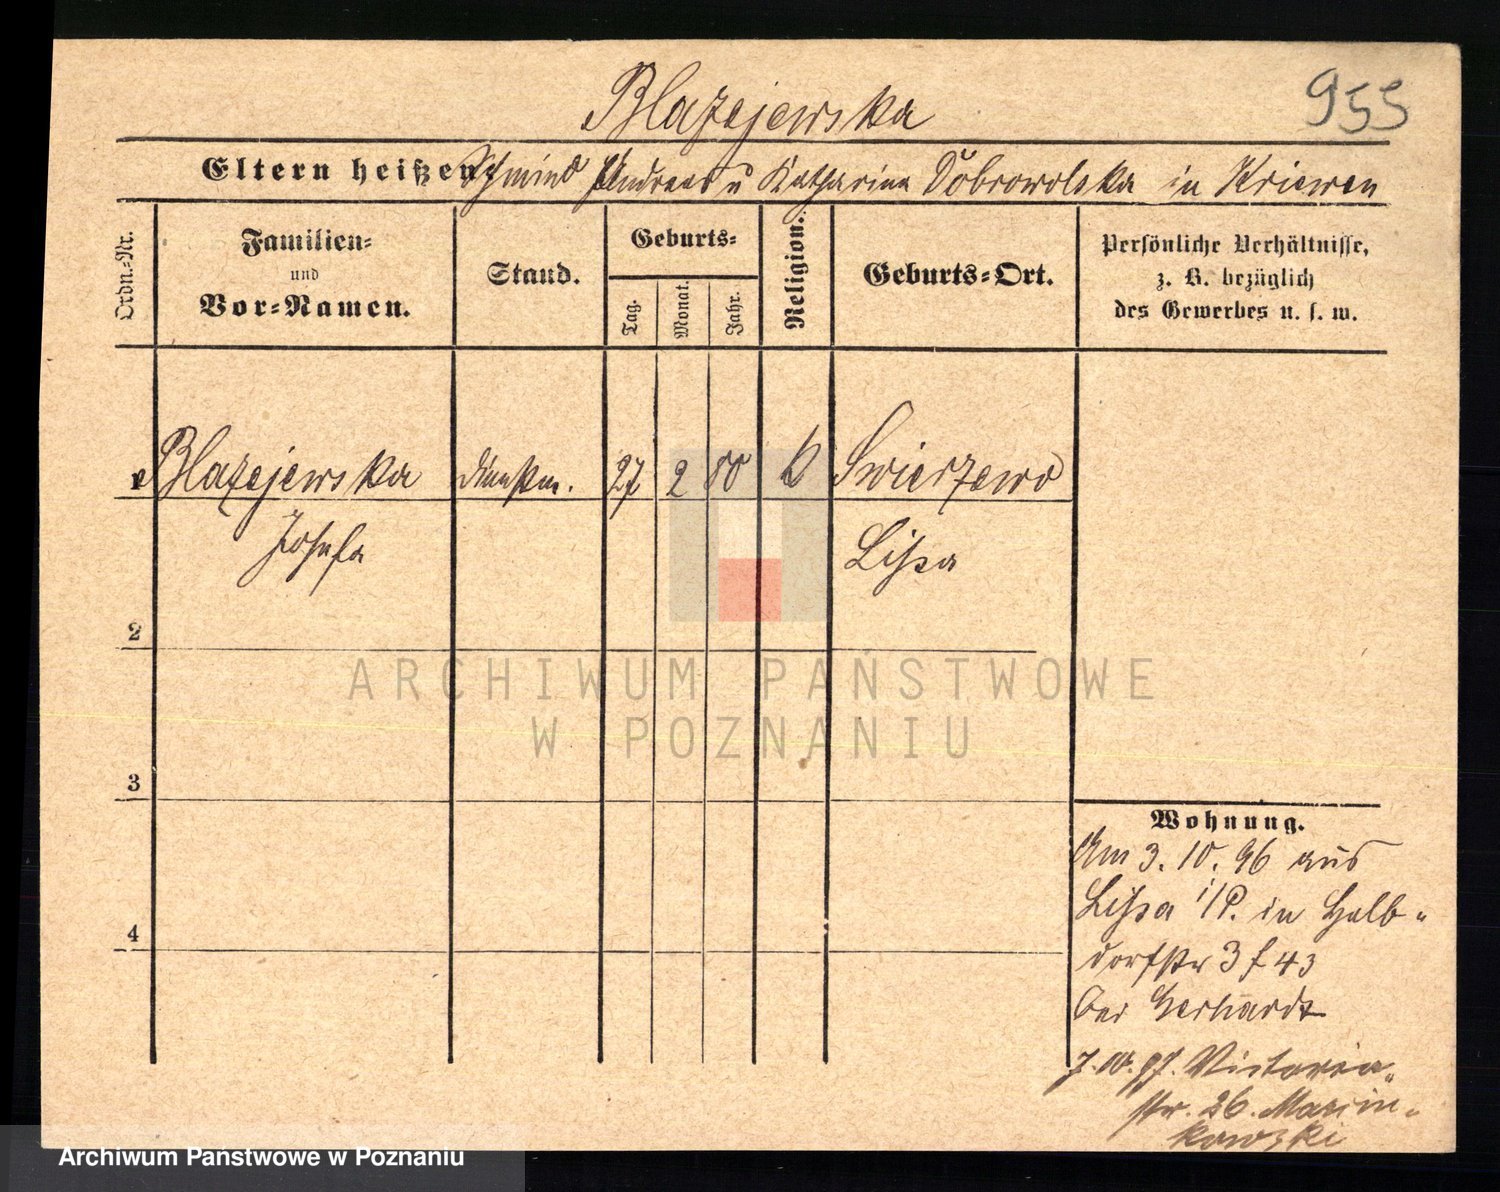 Blazejewska
955
Eltern heißen Schmied Andreas u Katharina Dobrowolska in Kriewen
Ordn.-Nr.
Familien-
und
Vor-Namen.
Stand.
Geburts-
Tag.
Monat.
Jahr.
Religion.
Geburts-Ort.
Persönliche Verhältnisse,
z. B. bezüglich
des Gewerbes u. s. w.
Blazejewska
27
2
80
k
Swierzewo
Josefa
Lissa
2
3
4
ARCHIWUM PAŃSTWOWE
W POZNANIU
Wohnung.
Am 3. 10. 96 aus
Lissa i/P. in Halb-
dorfstr 3 f 43
bei Gerhardt
7. 10. 97. Victoria-
str. 26. Marcin-
kowski
Archiwum Państwowe w Poznaniu